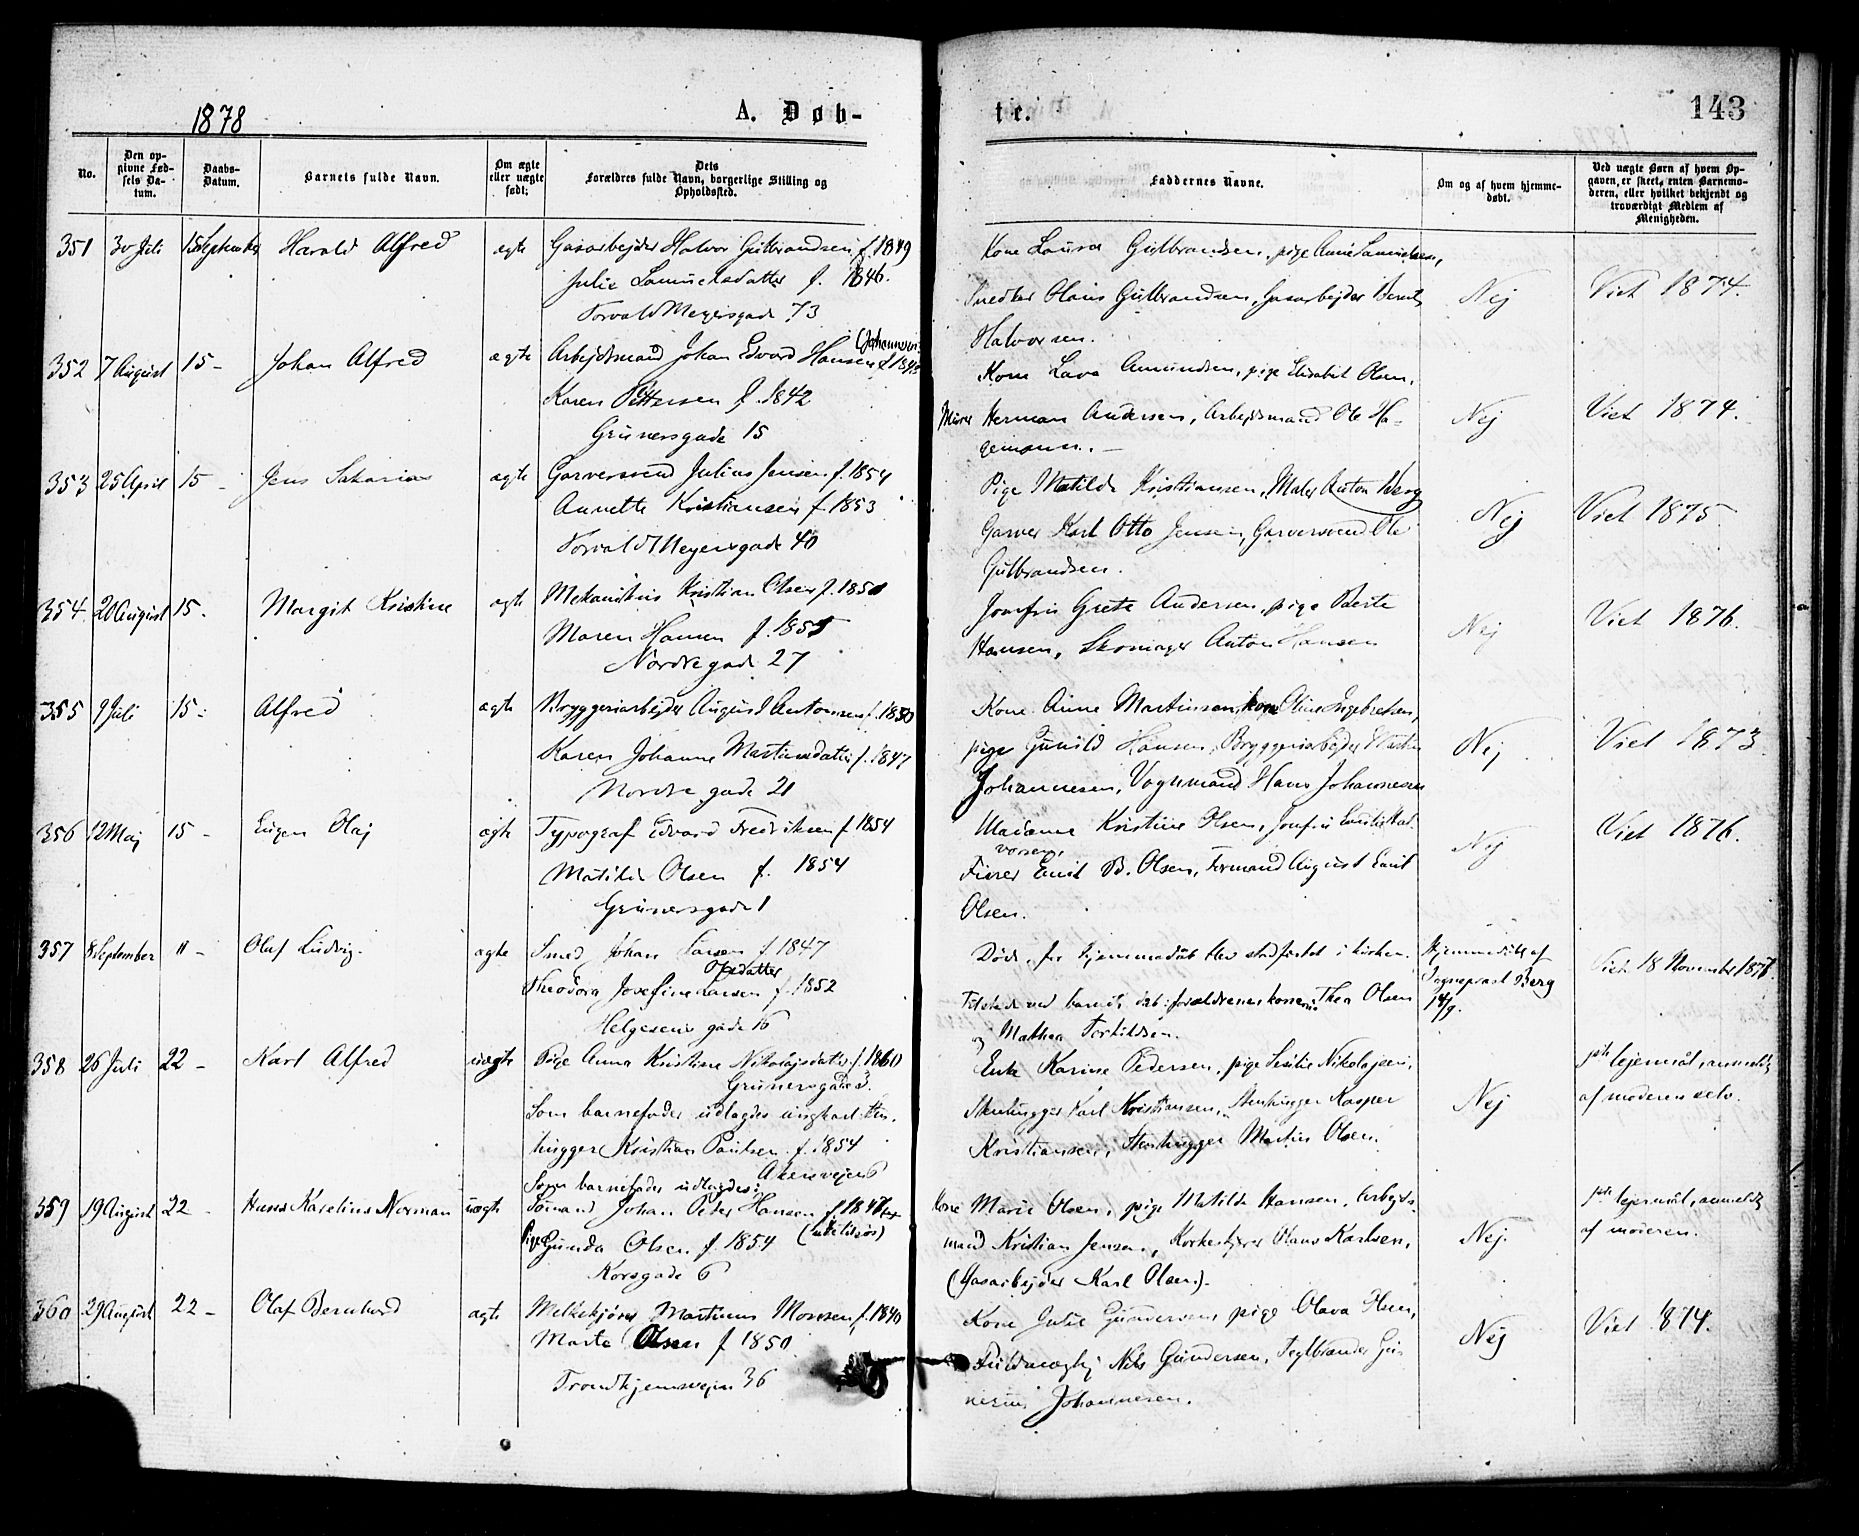 1878
A. Døb-
te.
143
No.
Den opgivne Fødsels Datum.
Daabs-Datum.
Barnets fulde Navn.
Om ægte eller uægte født;
Dets Forældres fulde Navn, borgerlige Stilling og Opholdssted.
Faddernes Navne.
Om og af hvem hjemmedøbt.
Ved uægte Børn af hvem Opgaven, er skeet, enten Barnemoderen, eller hvilket bekjendt og troværdigt Medlem af Menigheden.
351 30 Juli 15 September Harald Alfred ægte Gasarbejder Halvor Gulbrandsen f. 1849
Julie Samuelsdatter f. 1846.
Torvald Meyersgade 73
Kone Laura Gulbrandsen, pige Anne Samuelsen,
Snedker Olaus Gulbrandsen, Gasarbejder Bernt
Halvorsen.
Nej
Viet 1874.
352 7 August 15 - Johan Alfred ægte Arbejdsmand Johan Edvard Hansen (Johannesen)
Karen Pettersen f. 1842
Grünersgade 15
Kone Lava Amundsen, pige Elisabet Olsen,
Murer Herman Andersen, Arbejdsmand Ole Ha-
gemann. -
Nej
Viet 1874.
353 25 April 15 - Jens Sakarias ægte Garversvend Julius Jensen f. 1854
Annette Kristiansen f. 1853
Torvald Meyersgade 40
Pige Matilde Kristiansen, Maler Anton Berg
Garver Karl Otto Jensen, Garversvend Ole
Gulbrandsen.
Nej
Viet 1875.
354 20 August 15. Margit Kristine ægte Mekanikus Kristian Olsen f. 1850
Maren Hansen f. 1855
Nordregade 27
Jomfru Grete Andersen, pige Berte
Hansen, Skomager Anton Hansen
Nej
Viet 1876.
355 9 Juli 15 - Alfred ægte Bryggeriarbejder August Antonsen f. 1850
Karen Johanne Martinsdatter f. 1847
Nordre gade 21
Kone Anne Martinsen, kone Oline Ingebretsen,
pige Gunild Hansen, Bryggeriarbejder Martin
Johannesen, Vognmand Hans Johannesen
Nej
Viet 1873.
356 12 Maj 15 - Eugen Olaj ægte Typograf Edvard Fredriksen f. 1854
Matilde Olsen f. 1854
Grünersgade 1
Madame Kristine Olsen, Jomfru Emilie Hal-
vorsen,
Fiirer Emil B. Olsen, Formand August Emil
Olsen.
Nej
Viet 1876.
357 8 September 11 - Olaf Ludvig. ægte Smed Johan Larsen f. 1847
Olsdatter
Theodora Josefine Larsen f. 1852
Helgesens gade 16
Døde, før hjemmedåb blev stadfæstet i kirken.
Tilstede ved barnets dåb: forældrene, konerne Thea Olsen
og Mathea Torkildsen.
Hjemmedøbt af
Sogneprest Berg
14/9.
Viet 18 November 187
358 26 Juli 22 - Karl Alfred uægte Pige Anna Kristine Nikolajsdatter f. 1860
Grünersgade 3.
Som barnefader udlagdes ungkarl Sten-
hugger Kristian Paulsen f. 1854
Akersvejen 6
Enke Karine Pedersen, pige Sesilie Nikolajsen,
Stenhugger Karl Kristiansen, Stenhugger Kasper
Kristiansen, Stenhugger Martin Olsen.
Nej
1ste lejermål, anmeldt
af moderen selv.
359 19 August 22 - Hans Karelius Norman uægte Som barnefader udlagdes:
Sømand Johan Peder Hansen f. 1847
Pige Gunda Olsen f. 1854 (udetilsjøs)
Korsgade 6
Kone Marie Olsen, pige Matilde Hansen, Arbejds-
mand Kristian Jensen, Korkeskjærer Hans Karlsen,
(Gasarbejder Karl Olsen).
Nej.
1ste lejermål, anmeldt
af moderen.
360 29 August 22 - Olaf Bernhard ægte Melkekjører Martinus Monsen f. 1840
Marte Olsen f 1850
Trondhjemsvejen 36
Kone Julie Gundersen, pige Olava Olsen,
Fuldmægtig Nils Gundersen, Teglbrænder Gu-
nerius Johannesen.
Nej
Viet 1874.